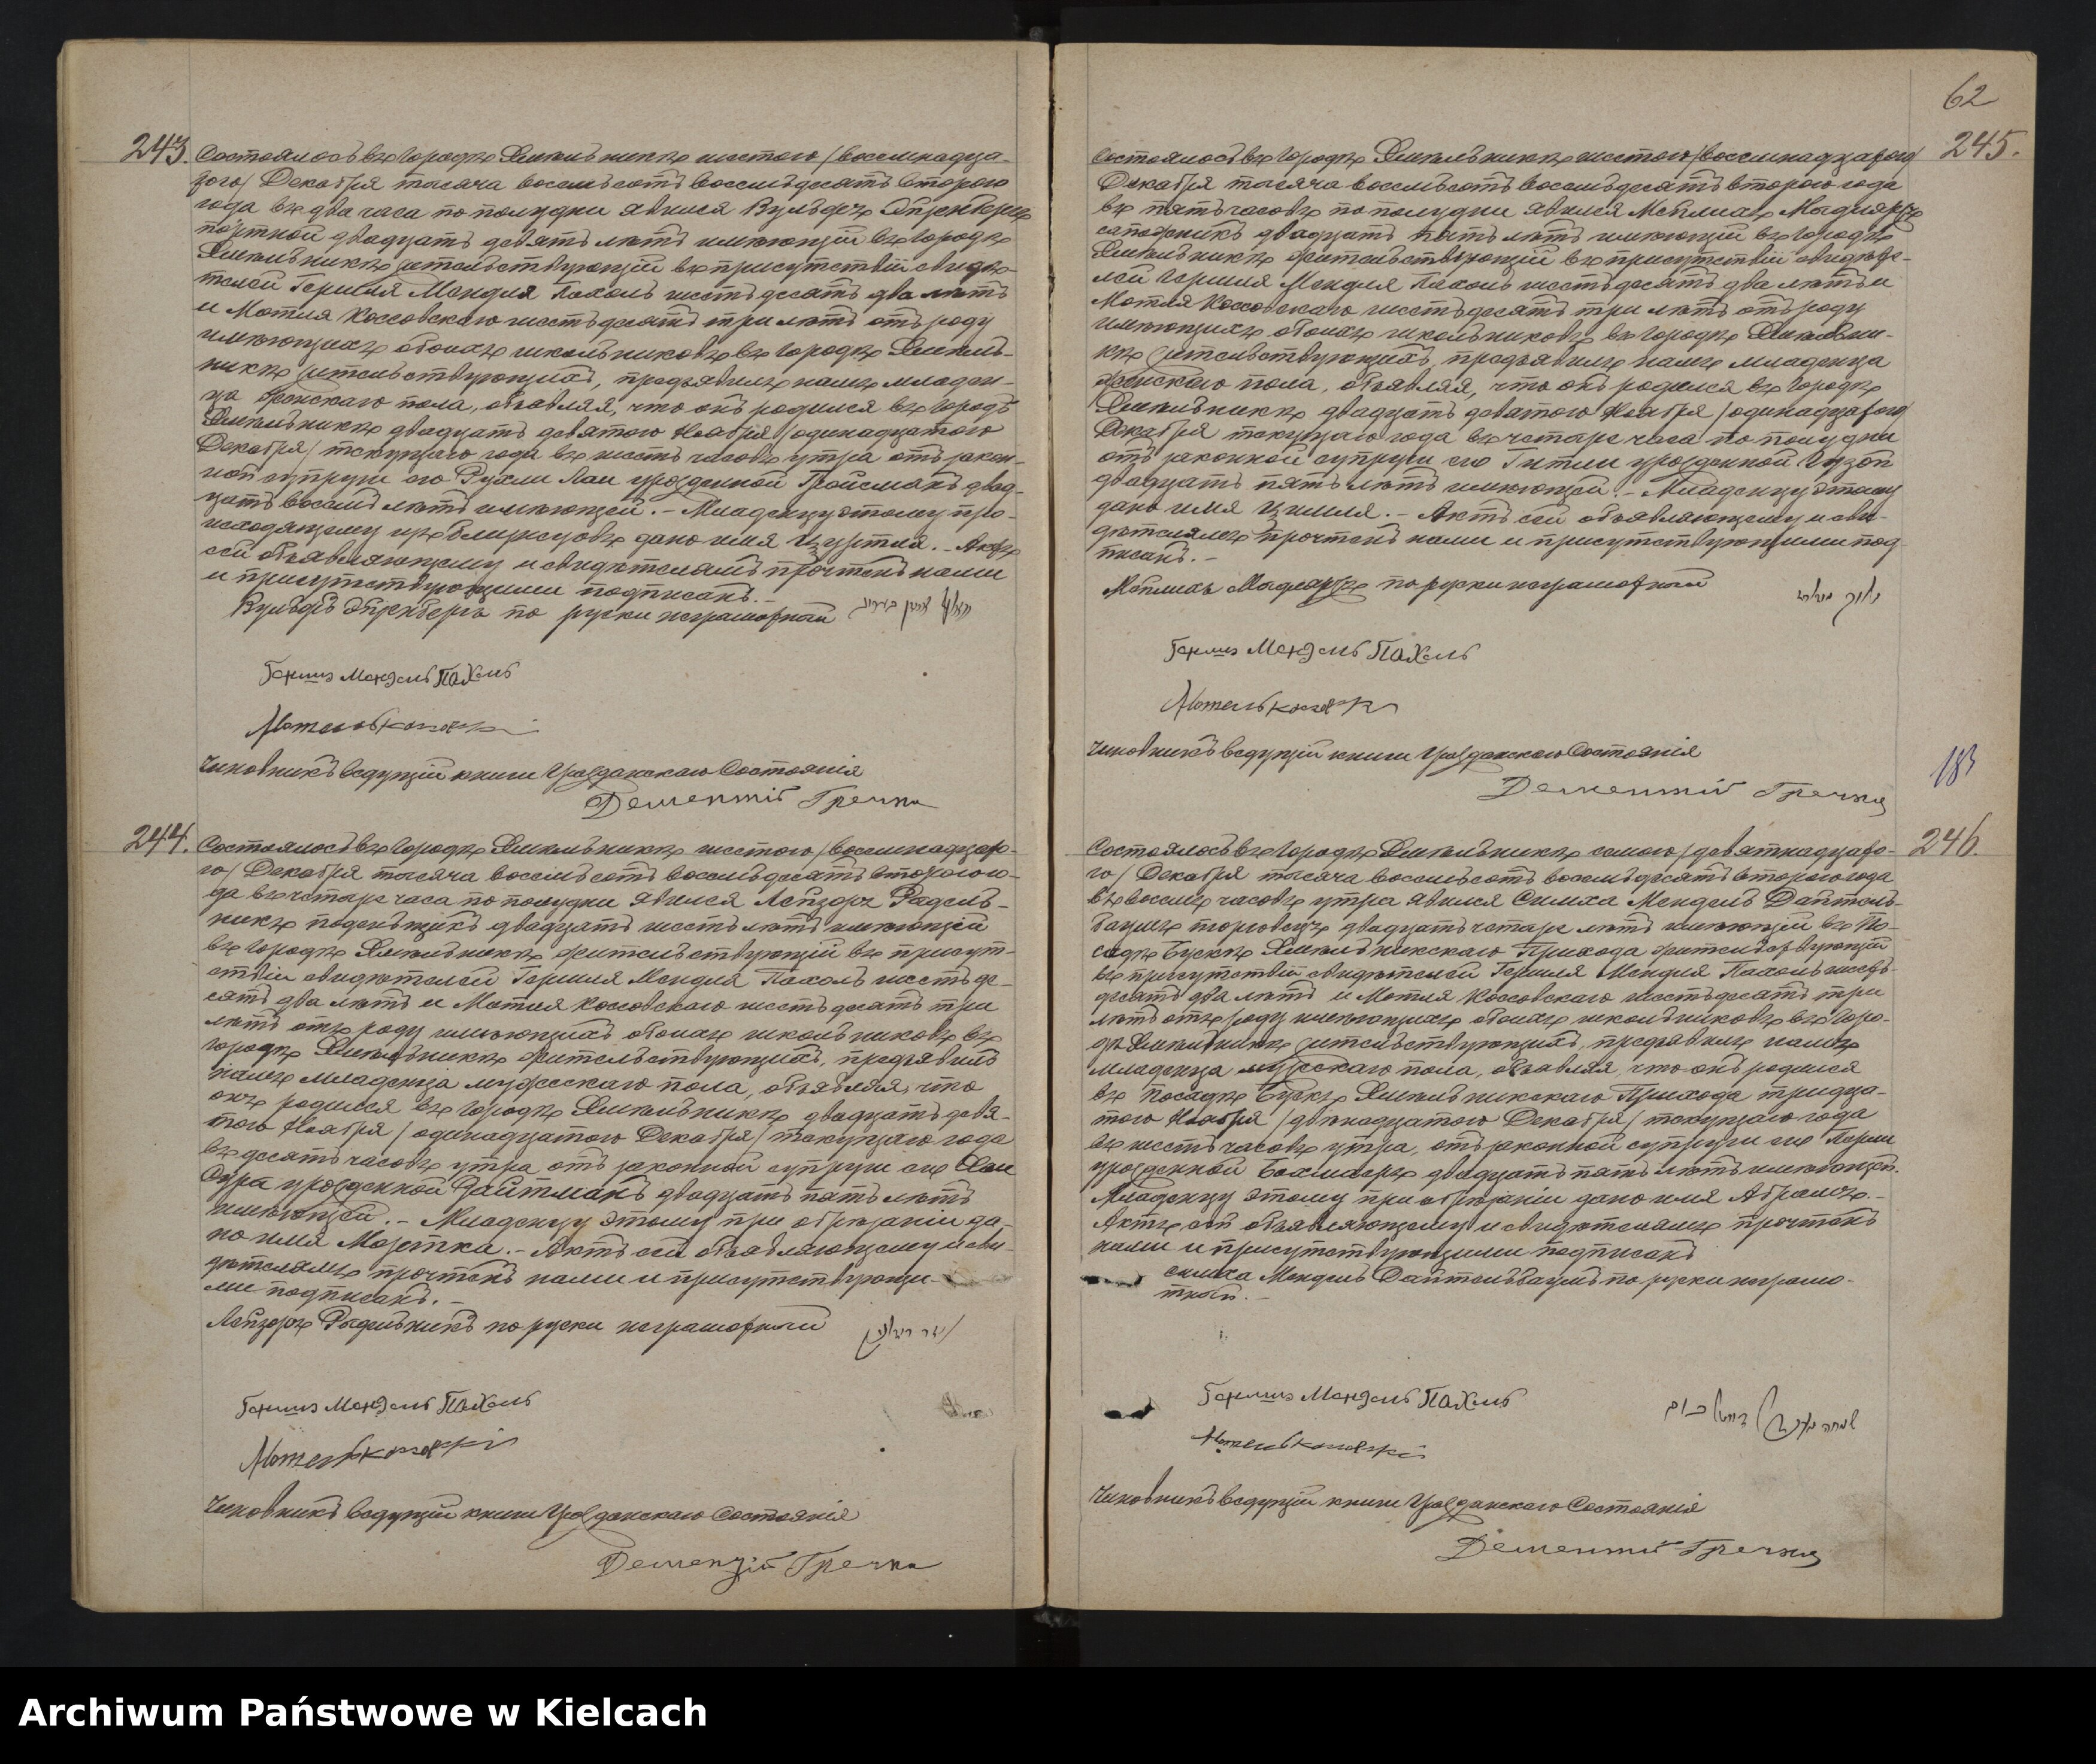 243.
Состоялось въ Городѣ Хмѣльникѣ шестого /восемнадца-
того/ Декабря тысяча восемьсотъ восемьдесятъ второго
года въ два часа по полудни явился Вульфъ
портной двадцать девять лѣтъ имѣющій въ Городѣ
Хмѣльникѣ жительствующій въ присутствіи свидѣ-
телей Гершля Мендля Пахоль шестьдесятъ два лѣтъ
и Мотля Коссовскаго шестьдесятъ три лѣтъ отъ роду
имѣющихъ обоихъ школьниковъ въ Городѣ Хмѣль-
никѣ жительствующихъ, предъявилъ намъ младен-
ца женскаго пола, объявляя, что онъ родился въ Городѣ
Хмѣльникѣ двадцать девятого Ноября /одинадцатого
Декабря/ текущаго года въ шесть часовъ утра отъ закон-
ной супруги его Рухли Лаи урожденной Гройсманъ двад-
цать восемь лѣтъ имѣющей. - Младенцу этому про-
исходящему изъ близнецовъ дано имя. - Актъ
сей объявляющему и свидѣтелямъ прочтенъ нами
и присутствующими подписанъ. -
по руски неграмотный
Гершъ Мендель Пахель
Мотель
Чиновникъ ведущій книги Гражданскаго Состоянія
Дементій Гречка
244.
Состоялось въ Городѣ Хмѣльникѣ шестого /восемнадцато-
го/ Декабря тысяча восемьсотъ восемьдесятъ второго го-
да въ четыре часа по полудни явился Лейзоръ Радель-
никъ поденьщикъ двадцать шесть лѣтъ имѣющій
въ Городѣ Хмѣльникѣ жительствующій въ присут-
ствіи свидѣтелей Гершля Мендля Пахоль шестьде-
сятъ два лѣтъ и Мотля Коссовскаго шестьдесятъ три
лѣтъ отъ роду имѣющихъ обоихъ школьниковъ въ
Городѣ Хмѣльникѣ жительствующихъ, предъявилъ
намъ младенца мужескаго пола, объявляя, что
онъ родился въ Городѣ Хмѣльникѣ двадцать девя-
того Ноября /одинадцатого Декабря/ текущаго года
въ десять часовъ утра отъ законной супруги его Хаи
Сура урожденной двадцать пять лѣтъ
имѣющей. - Младенцу этому при обрѣзаніи да-
но имя. - Актъ сей объявляющему и сви-
дѣтелямъ прочтенъ нами и присутствующи-
ми подписанъ. -
Лейзоръ Радельникъ по руски неграмотный
Гершъ Мендель Пахель
Мотель
Чиновникъ ведущій книги Гражданскаго Состоянія
Дементій Гречка
62
245.
Состоялось въ Городѣ Хмѣльникѣ шестого /восемнадцатого/
Декабря тысяча восемьсотъ восемьдесятъ второго года
въ пять часовъ по полудни явился
сапожникъ двадцать пять лѣтъ имѣющій въ Городѣ
Хмѣльникѣ жительствующій въ присутствіи свидѣте-
лей Гершля Мендля Пахоль шестьдесятъ два лѣтъ и
Мотля Коссовскаго шестьдесятъ три лѣтъ отъ роду
имѣющихъ обоихъ школьниковъ въ Городѣ Хмѣльни-
кѣ жительствующихъ, предъявилъ намъ младенца
женскаго пола, объявляя, что онъ родился въ Городѣ
Хмѣльникѣ двадцать девятого Ноября /одинадцатого/
Декабря текущаго года въ четыре часа по полудни
отъ законной супруги его Гитли урожденной
двадцать пять лѣтъ имѣющей. - Младенцу этому
дано имя. - Актъ сей объявляющему и сви-
дѣтелямъ прочтенъ нами и присутствующими под-
писанъ. -
по руски неграмотный
Гершъ Мендель Пахель
Мотель
Чиновникъ ведущій книги Гражданскаго Состоянія
183
Дементій Гречка
246.
Состоялось въ Городѣ Хмѣльникѣ седмого /девятнадцато-
го/ Декабря тысяча восемьсотъ восемьдесятъ второго года
въ восемь часовъ утра явился Симха Мендель Дайтель-
баумъ торговецъ двадцать четыре лѣтъ имѣющій въ По-
садѣ Бускѣ Хмѣльникскаго Прихода жительствующій
въ присутствіи свидѣтелей Гершля Мендля Пахоль шесть-
десятъ два лѣтъ и Мотля Коссовскаго шестьдесятъ три
лѣтъ отъ роду имѣющихъ обоихъ школьниковъ въ Горо-
дѣ Хмѣльникѣ жительствующихъ, предъявилъ намъ
младенца мужескаго пола, объявляя, что онъ родился
въ Посадѣ Бускѣ Хмѣльникскаго Прихода тридца-
того Ноября /двѣнадцатого Декабря/ текущаго года
въ шесть часовъ утра, отъ законной супруги его Перли
урожденной двадцать пять лѣтъ имѣющей.
Младенцу этому при обрѣзаніи дано имя Абрамъ. -
Актъ сей объявляющему и свидѣтелямъ прочтенъ
нами и присутствующими подписанъ
Симха Мендель Дайтельбаумъ по руски неграмо-
тный. -
Гершъ Мендель Пахель
שמחה מענדל דייטלבוים
Мотель
Чиновникъ ведущій книги Гражданскаго Состоянія
Дементій Гречка
Archiwum Państwowe w Kielcach